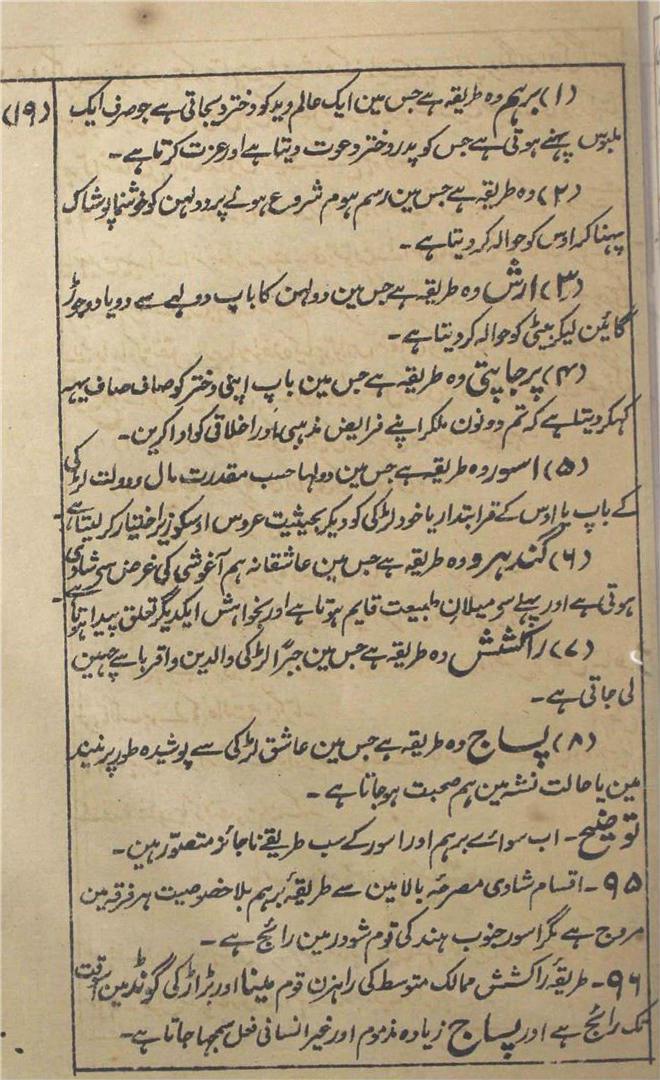 (۱) برہم وہ طریقہ ہے جس مین ایک عالم وید کو دختر دیجاتی ہے جو صرف ایک
(۱۹)
ملبوس پہنے ہوتی ہے جس کو پدر دختر دعوت دیتا ہے اور عزت کرتا ہے۔
(۲) وہ طریقہ ہے جس مین رسم ہوم شروع ہونے پر دولہن کو خوشنما پوشاک
پہنا کر اوس کو حوالہ کر دیتا ہے۔
(۳) ارش وہ طریقہ ہے جس مین دولہن کا باپ دولہے سے دو یا دو جوڑ
گائین لیکر بیٹی کو حوالہ کر دیتا ہے۔
(۴) پرجاپتی وہ طریقہ ہے جس مین باپ اپنی دختر کو صاف صاف یہہ
کہکر دیتا ہے کہ تم دونون ملکر اپنے فرایض مذہبی اور اخلاقی کو ادا کرین۔
(۵) اسور وہ طریقہ ہے جس مین دولہا حسب مقدرت مال و دولت لڑکی
کے باپ یا اوس کے قرابتدار یا خود لڑکی کو دیکر بحیثیت عروس اوسکو زیر اختیار کر لیتا ہے
(۶) گندہرو وہ طریقہ ہے جس مین عاشقانہ ہم آغوشی کی غرض سے شادی
ہوتی ہے اور پہلے سے میلان طبیعت قایم ہوتا ہے اور بخواہش ایکدیگر تعلق پیدا ہوتا ہے۔
(۷) راکشش وہ طریقہ ہے جس مین جبرًا لڑکی والدین و اقربا سے چہین
لی جاتی ہے۔
(۸) پساج وہ طریقہ ہے جس مین عاشق لڑکی سے پوشیدہ طور پر نیند
مین یا حالت نشہ مین ہم صحبت ہو جاتا ہے۔
توضیح۔ اب سواے برہم اور اسور کے سب طریقے ناجائز متصور ہین۔
۹۵۔ اقسام شادی مصرحہ بالا مین سے طریقۂ برہم بلا خصوصیت ہر فرقہ مین
مروج ہے مگر اسور جنوب ہند کی قوم شودر مین رائج ہے۔
۹۶۔ طریقۂ راکشش ممالک متوسط کی راہزن قوم مینا اور برار کی گونڈ مین اسوقت
تک رائج ہے اور پساج زیادہ مذموم اور غیر انسانی فعل سمجہا جاتا ہے۔